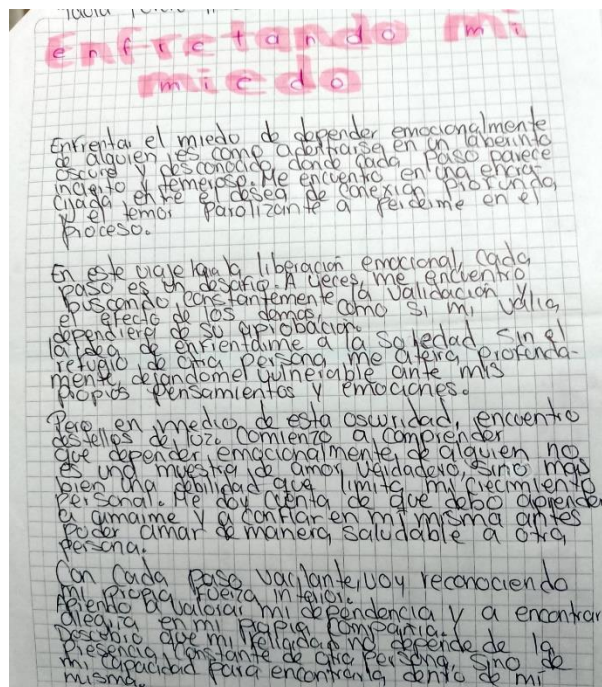 Enfretando mi
miedo
Enfrentar el miedo de depender emocionalmente
de alguien, es como adentrarse en un laberinto
oscuro y desconcado donde cada paso parece
incierto y temeroso. Me encuentro en una encru-
cijada entre el deseo de conexion profunda,
y el temor paralizante a perderme en el
proceso.
En este viaje hacia la liberación emocional, cada
paso es un desafio. A veces, me encuentro
buscando constantemente la validación y
el efecto de los demas, como si mi valia
dependiera de su aprobación.
la idea de enfrentarme a la soledad sin el
refugio de otra persona me aterra profunda-
mente, dejandome vulnerable ante mis
propios pensamientos y emociones.
Pero en medio de esta oscuridad, encuentro
destellos de luz. Comienzo a comprender
que depender emocionalmente de alguien no
es una muestra de amor verdadero, sino mas
bien una debilidad que limita mi crecimiento
personal. Me doy cuenta de que debo aprender
a amarme y a confiar en mi misma antes
poder amar de manera saludable a otra
persona.
Con cada paso vacilante, voy reconociendo
mi propia fuerza interior.
Aprendo a valorar mi dependencia y a encontrar
alegria en mi propia compañia.
Descubro que mi felicidad no depende de la
presencia constante de otra persona, sino de
mi capacidad para encontrarla dentro de mi
misma.